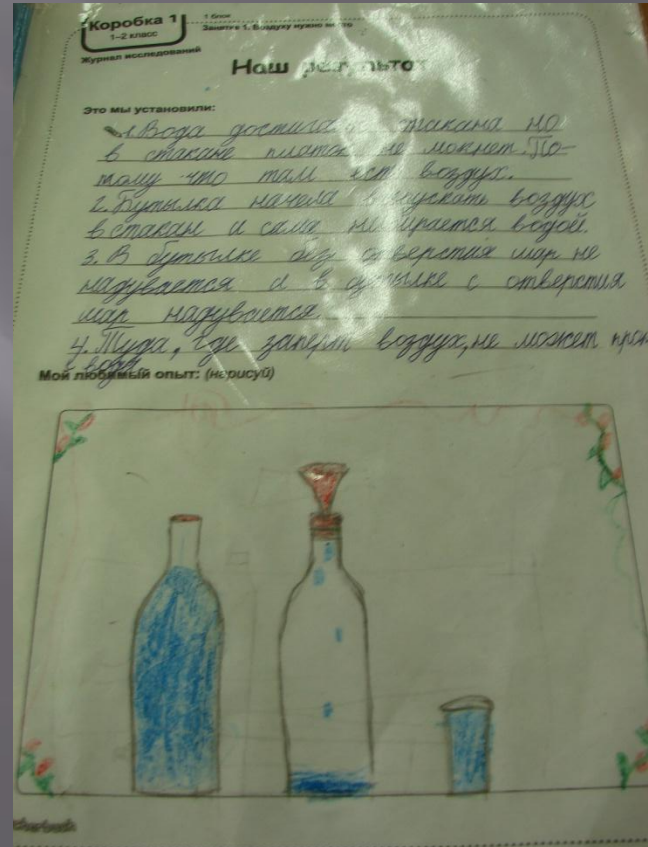 Коробка 1
1–2 класс
1 блок
Занятие 1. Воздуху нужно место
Журнал исследований
Наш результат
Это мы установили:
1. Вода достигает стакана но
в стакане платок не мокнет. По-
тому что там ест воздух.
2. Бутылка начела впускать воздух
в стакан и сама набирается водой.
3. В бутылке без отверстия шар не
надувается а в бутылке с отверстия
шар надувается.
4. Туда, где заперт воздух, не может
вода
Мой любимый опыт: (нарисуй)